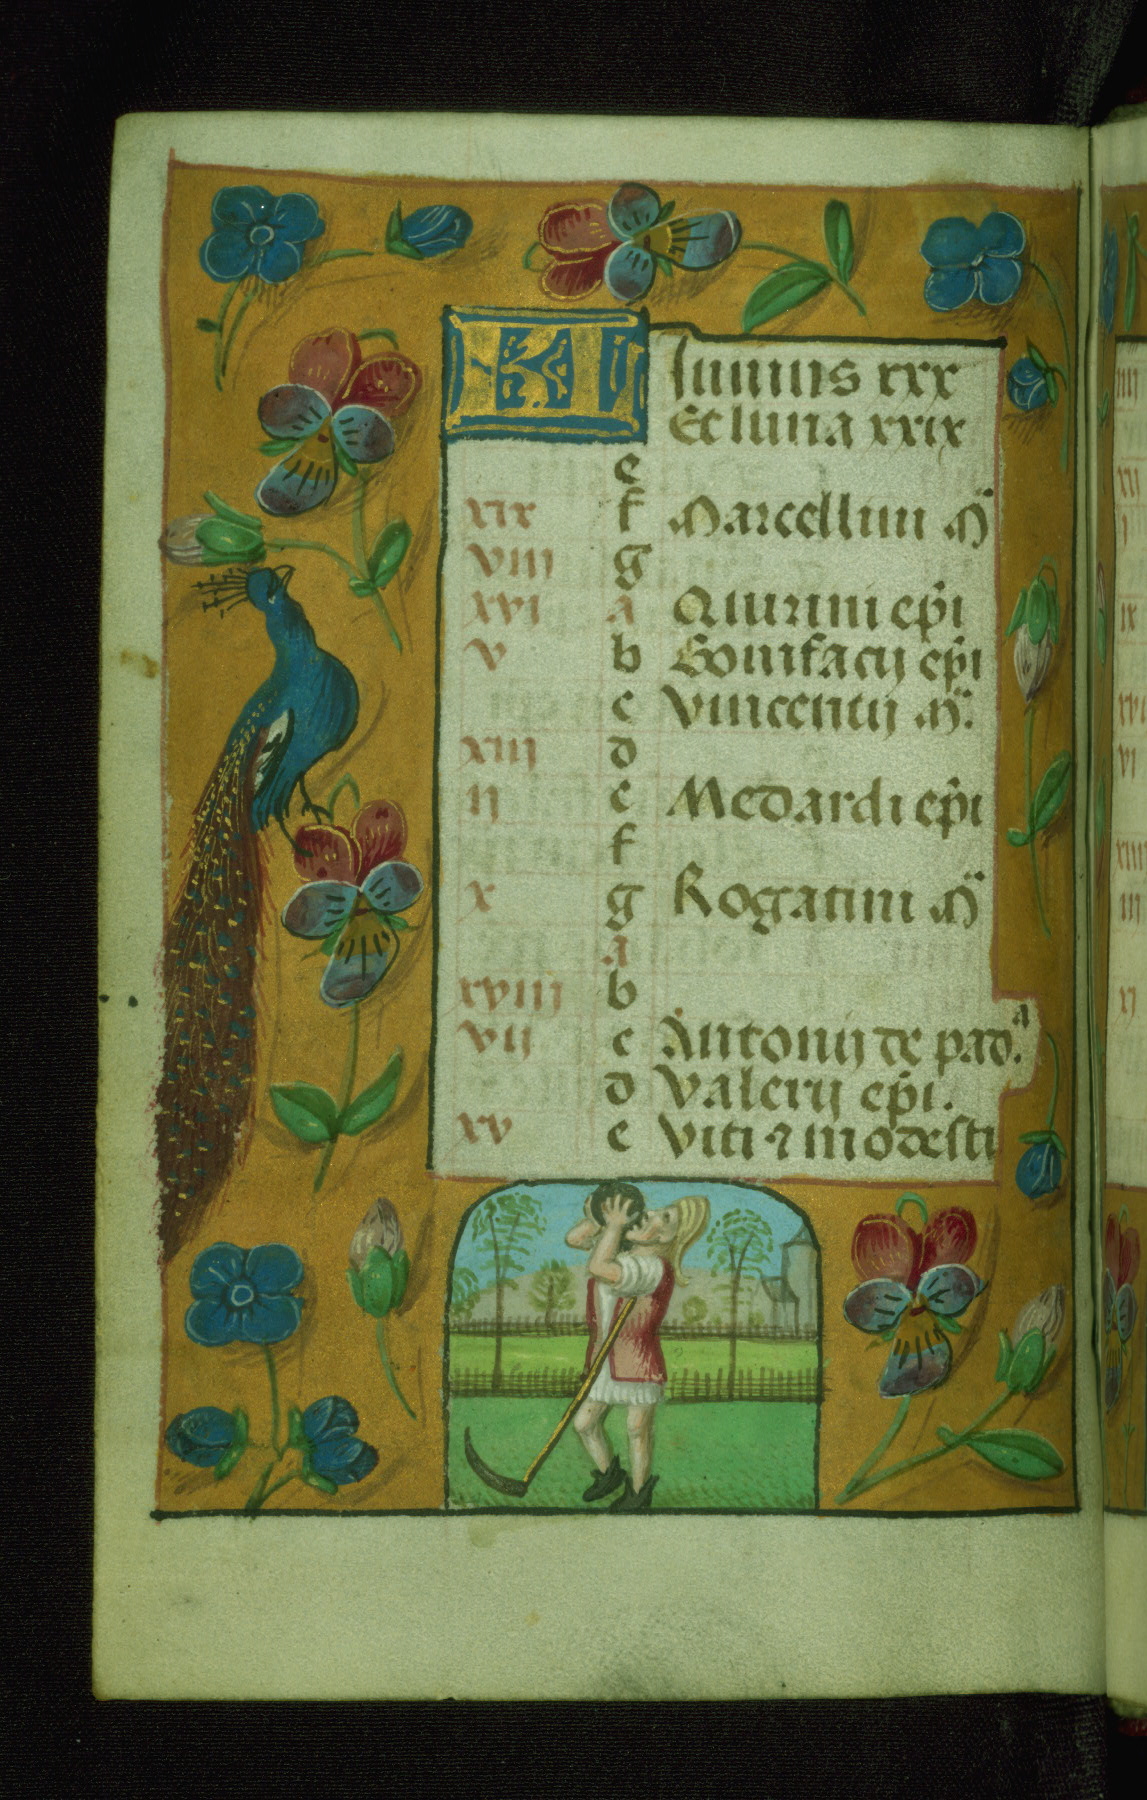 Kl Junius xxx
Et luna xxix
e
xix f Marcellini m̃
viii g
xvi a Quirini ep̃i
v b Bonifacij ep̃i
c Vincentij m̃.
xiii d
ij e Medardi ep̃i
f
x g Rogatini m̃
a
xviii b
vij c Antonij de padᵃ.
d Valerij ep̃i.
xv e Viti ⁊ modesti